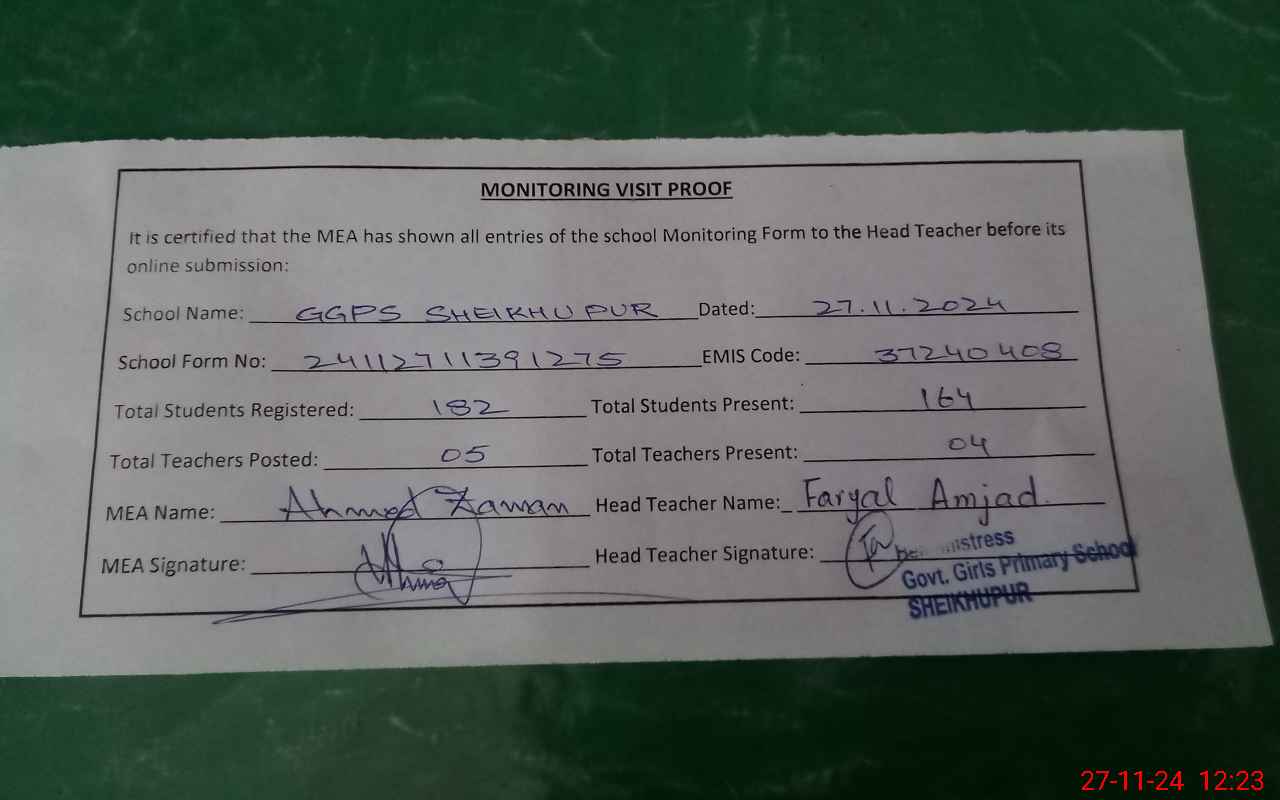 MONITORING VISIT PROOF
It is certified that the MEA has shown all entries of the school Monitoring Form to the Head Teacher before its
online submission:
School Name: GGPS SHEIKHUPUR Dated: 27.11.2024
School Form No: 24112711391275 EMIS Code: 37240408
Total Students Registered: 182 Total Students Present: 164
Total Teachers Posted: 05 Total Teachers Present: 04
MEA Name: Ahmed Zaman Head Teacher Name: Faryal Amjad.
MEA Signature: Head Teacher Signature:
Govt. Girls Primary School
SHEIKHUPUR
27-11-24 12:23